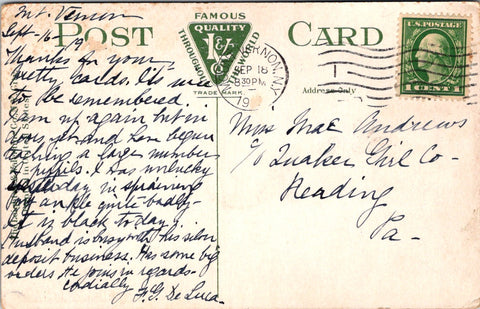 Mt. Vernon
Sept-16-19
POST CARD
FAMOUS
QUALITY
THROUGHOUT
THE WORLD
TRADE MARK.
VERNON, N.Y.
SEP 16
830 PM
19
Address Only
U.S. POSTAGE
1 CENT 1
Thanks for your
pretty cards. It's nice
to be remembered.
am up again but in
and have begun
teaching a large number
of pupils. I was unlucky
yesterday in spraining
my ankle quite badly-
It is black today.
Husband is busy with his silver
deposit business. Has some big
orders He joins in regards-
cordially
H. G. De Luca.
Miss Mae Andrews
c/o Quaker Girl Co-
Reading
Pa-